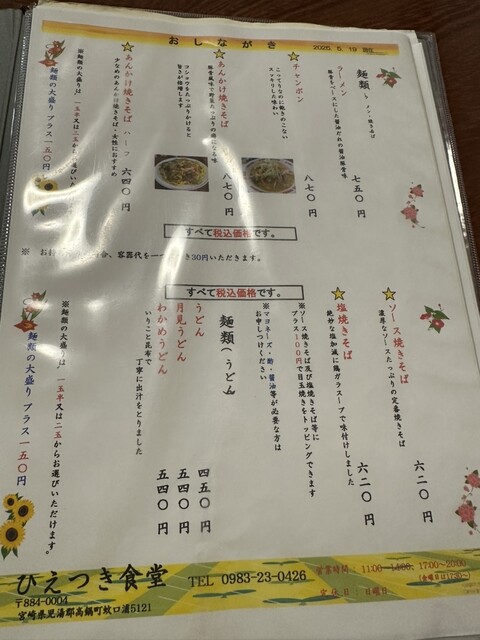 おしながき
2025. 5. 19
麺類
ラーメン・焼きそば
ラーメン
豚骨をベースにした醤油だれの醤油豚骨味
七五〇円
☆チャンポン
こってりなのに飽きのこない
スッキリした味わい
八七〇円
☆あんかけ焼きそば
豚骨風味で野菜たっぷりの癖になる味
コショウをたっぷりかけると
旨さが倍増します
八七〇円
☆あんかけ焼きそば ハーフ
少なめのあんかけ焼きそば・女性におすすめ
六四〇円
※麺類の大盛りは、一玉半又は二玉からお選びいただけます。
麺類の大盛り プラス一五〇円
すべて税込価格です。
※ お持 容器代を一 30円いただきます。
すべて税込価格です。
☆ソース焼きそば
濃厚なソースたっぷりの定番焼きそば
六二〇円
☆塩焼きそば
絶妙な塩加減に鶏ガラスープで味付けしました
六二〇円
※ソース焼きそば及び塩焼きそば等に
プラス100円で目玉焼きをトッピングできます
※マヨネーズ・酢・醤油等が必要な方は
お申しつけください
麺類(うどん)
うどん
四五〇円
月見うどん
五四〇円
わかめうどん
五四〇円
いりこと昆布で
丁寧に出汁をとりました
※麺類の大盛りは、一玉半又は二玉からお選びいただけます。
麺類の大盛り プラス一五〇円
ひえつき食堂
TEL 0983-23-0426
〒884-0004
宮崎県児湯郡高鍋町蚊口浦5121
営業時間：11:00-14:00、17:00~20:00
(金曜日は17:30~)
定休日：日曜日